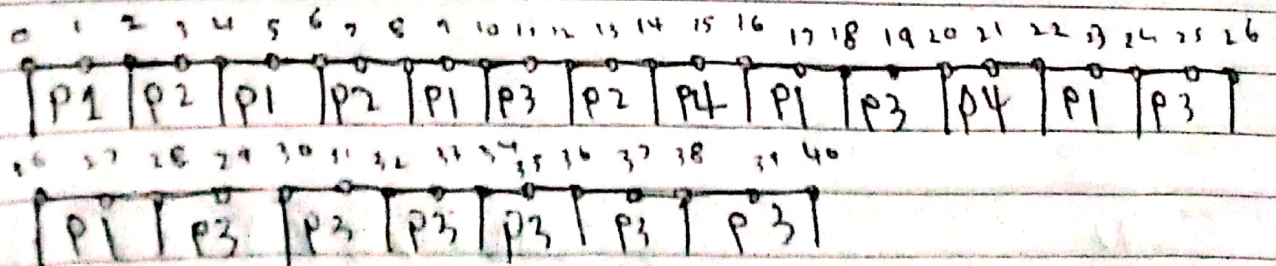 0 1 2 3 4 5 6 7 8 9 10 11 12 13 14 15 16 17 18 19 20 21 22 23 24 25 26
P1 P2 P1 P2 P1 P3 P2 P4 P1 P3 P4 P1 P3
26 27 28 29 30 31 32 33 34 35 36 37 38 39 40
P1 P3 P3 P3 P3 P3 P3